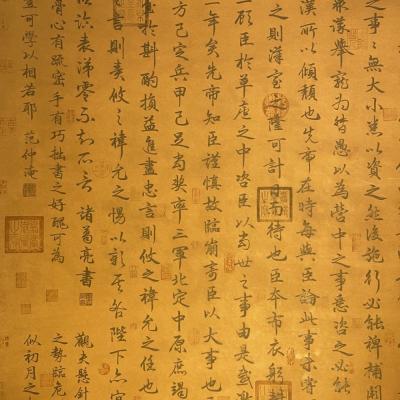 之事事無大小悉以資之然後施行必能裨補闕
眾議舉寵為督愚以為營中之事悉咨之必能
漢所以傾頹也先帝在時每與臣論此事未嘗
之則漢室之隆可計日而待也臣本布衣躬耕
顧臣於草廬之中咨臣以當世之事由是感激
一年矣先帝知臣謹慎故臨崩寄臣以大事也
方已定兵甲已足當獎率三軍北定中原庶竭
至於斟酌損益進盡忠言則攸之禕允之任也
言則責攸之禕允之慢以彰其咎陛下亦宜
表涕零不知所言 諸葛亮書
骨心有疏密手有巧拙書之好醜可為
豈可學以相若耶 范仲淹
觀夫懸針
之勢臨危
似初月之